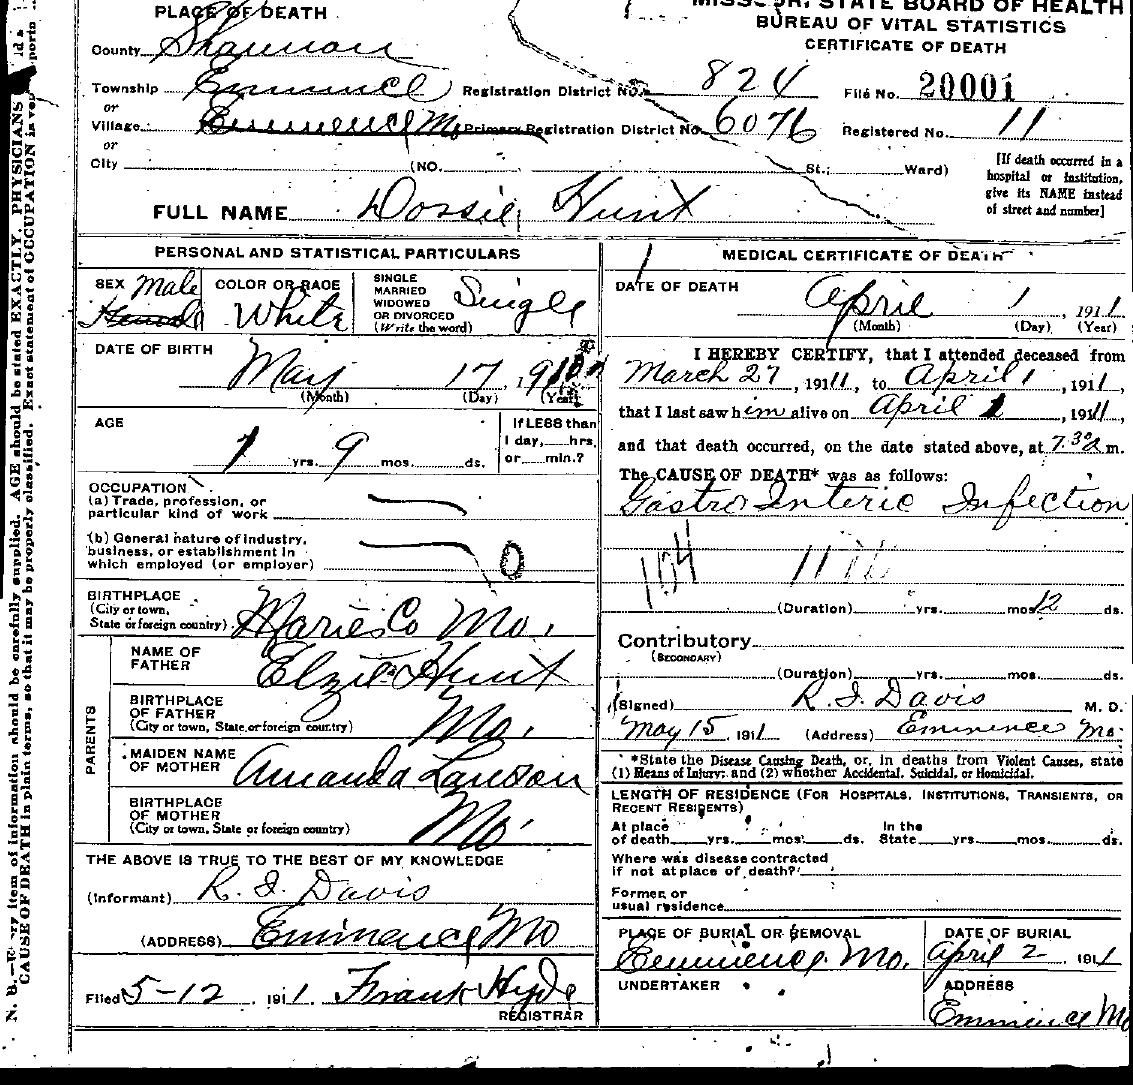 PLACE OF DEATH
STATE BOARD OF HEALTH
BUREAU OF VITAL STATISTICS
CERTIFICATE OF DEATH
County Shannon
Township Eminence Registration District No. 824 File No. 20001
or
Village Eminence Mo Primary Registration District No. 6076 Registered No. 11
or
City (NO. St.; Ward)
[If death occurred in a
hospital or institution,
give its NAME instead
of street and number]
FULL NAME Dossie Hunt
PERSONAL AND STATISTICAL PARTICULARS
SEX Male
COLOR OR RACE White
SINGLE
MARRIED
WIDOWED
OR DIVORCED
(Write the word) Single
DATE OF BIRTH May 17, 19
(Month) (Day) (Year)
AGE 1 yrs. 9 mos. ds.
If LESS than
1 day, hrs.
or min.?
OCCUPATION
(a) Trade, profession, or
particular kind of work
(b) General nature of industry,
business, or establishment in
which employed (or employer)
BIRTHPLACE
(City or town,
State or foreign country) Maries Co Mo.
PARENTS
NAME OF
FATHER Elzie Hunt
BIRTHPLACE
OF FATHER
(City or town, State or foreign country) Mo.
MAIDEN NAME
OF MOTHER Amanda Lawson
BIRTHPLACE
OF MOTHER
(City or town, State or foreign country) Mo.
THE ABOVE IS TRUE TO THE BEST OF MY KNOWLEDGE
(Informant) R. I. Davis
(ADDRESS) Eminence Mo
Filed 5-12 1911. Frank Hyde
REGISTRAR
MEDICAL CERTIFICATE OF DEATH
DATE OF DEATH April 1, 1911
(Month) (Day) (Year)
I HEREBY CERTIFY, that I attended deceased from
March 27, 1911, to April 1, 1911,
that I last saw him alive on April 1, 1911,
and that death occurred, on the date stated above, at 7.30 m.
The CAUSE OF DEATH* was as follows:
Gastro Interic Infection
104
(Duration) yrs. mos. 12 ds.
Contributory
(SECONDARY)
(Duration) yrs. mos. ds.
(Signed) R. I. Davis M. D.
May 15 1911 (Address) Eminence Mo.
*State the Disease Causing Death, or, in deaths from Violent Causes, state
(1) Means of Injury; and (2) whether Accidental, Suicidal, or Homicidal.
LENGTH OF RESIDENCE (FOR HOSPITALS, INSTITUTIONS, TRANSIENTS, OR
RECENT RESIDENTS)
At place In the
of death yrs. mos. ds. State yrs. mos. ds.
Where was disease contracted
if not at place of death?
Former or
usual residence
PLACE OF BURIAL OR REMOVAL DATE OF BURIAL
Eminence Mo. April 2 1911
UNDERTAKER ADDRESS
Eminence Mo
N. B.—Every item of information should be carefully supplied. AGE should be stated EXACTLY. PHYSICIANS
CAUSE OF DEATH in plain terms, so that it may be properly classified. Exact statement of OCCUPATION is very